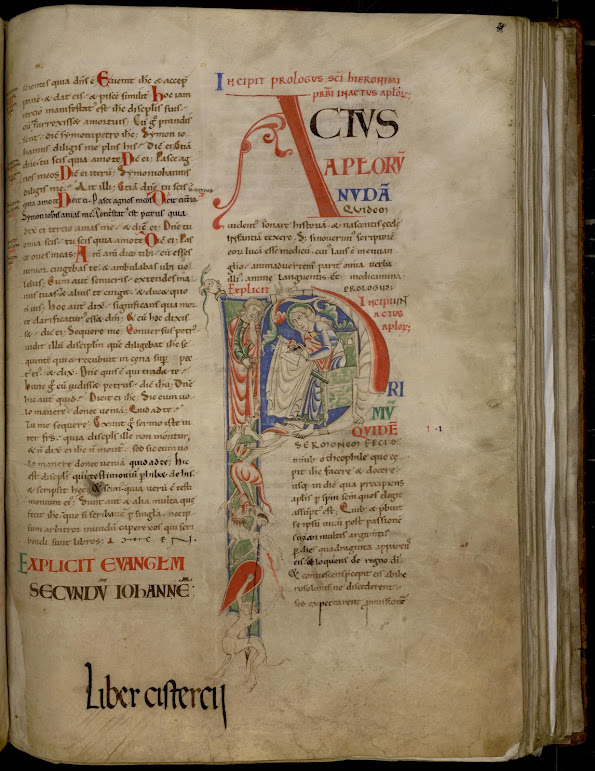 scientes quia dn̄s ē Et uenit ihc & accep
pane & dat eis & pisce similit̄ Hoc iam
tercio manifestat' est ihc discipl̄is suis
cū surrexiss& a mortuis Cū g̊ prandis
sent dic̄ symoni petro ihc Symon io
hannis diligis me plus his
dn̄e tu scis quia amo te Pasce ag
nos meos Dic̄ ei iterū Symon iohannis
diligis me Ait illi Etiā dn̄e tu scis
quia amo te Dicit ei Pasce agnos meos
Symon iohis amas me petrus quia
dix ei tercio amas me & dic̄ ei Dn̄e tu
omia scis tu scis quia amo te Dic̄ ei Pas
ce oues meas Am̄ am̄ dico tibi cū esses
iunior cingebas te & ambulabas ubi uo
lebas Cum aut senueris extendes ma
nus tuas & alius te cing& & duc& quo
n̄ uis Hoc aut dix significans qua mor
te clarificatur' ess& dm̄ & cū hoc dixis
s& dic̄ ei Sequere me Conuersus petr'
uidit illū discipl̄m que diligebat ihc se
quente qui & recubuit in cena sup̄ pec
t' ei' & dix Dn̄e quis ē qui trad& te
hunc g̊ cū uidiss& petrus dic̄ ihu Dn̄e
hic aut quid Dicit ei ihc Sic eum uo
lo manere donec ueniā Quid ad te
Tu me sequere Exiuit g̊ sermo iste in
ter fr̄s quia discipl̄s ille non moritur
& n̄ dix ei ihc n̄ morit' sed sic eum uo
lo manere donec ueniā quid ad te Hic
est discipl̄s qui testimoniū phib& de his
& scripsit hec & scim' quia uerū ē testi
moniū ei' Sunt aut & alia multa que
fecit ihc que si scribant' p singula nec ip
sum arbitror mundū capere eos qui scri
bendi sunt libros
EXPLICIT EVANGLM
SECVNDV̄ IOHANNĒ
Incipit prologus sci hieronimi
pbri in actus aplor
ACTVS
APLORV̄
NVDĀ
QVIDEM
uident' sonare historiā & nascentis eccl̄e
infantiā texere Si nouerim' scriptore
eoru lucā esse medicū cui' laus ē in euan
glio animaduertem' parit̄ omia uerba
illi' anime languentis ee medicinam
EXPLICIT PROLOGUS
INCIPIUN
ACTUS
APLOR
PRI
MV̄
QVIDĒ
SERMONEM FECI DE
omib' o theophile que ce
pit ihc facere & docere
usq; in die qua precipiens
aplis p spm scm quos elegit
assūpt' est Quib' & p̄buit
se ipsū uiuū post passione
suā in multis argutis
p dies quadraginta apparens
eis & loquens de regno di
& conuescens p̄cepit eis ab ihe
rosolimis ne discederent
sed expectarent p̄missione
Liber cistercij